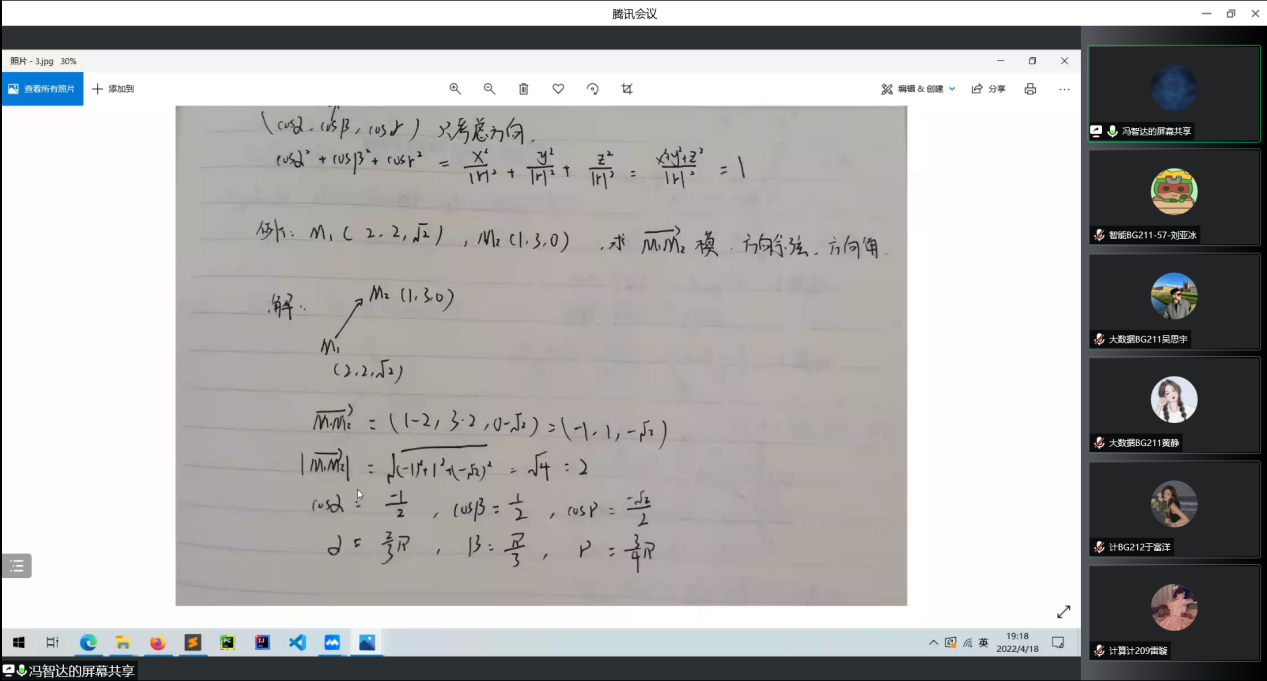 腾讯会议
照片 - 3.jpg 30%
查看所有照片 添加到 编辑 & 创建 分享
(cosα, cosβ, cosγ) 只考虑方向.
cosα² + cosβ² + cosγ² = x²/|r|² + y²/|r|² + z²/|r|² = x²+y²+z²/|r|² = 1
例: M₁ ( 2, 2, √2 ) , M₂ (1, 3, 0) , 求 M₁M₂ 模. 方向余弦. 方向角.
解: M₂ (1, 3, 0)
M₁
(2, 2, √2)
M₁M₂ = (1-2, 3-2, 0-√2) = (-1, 1, -√2)
|M₁M₂| = √(-1)²+1²+(-√2)² = √4 = 2
cosα = -1/2 , cosβ = 1/2 , cosγ = -√2/2
α = 2/3π , β = π/3 , γ = 3/4π
冯智达的屏幕共享
智能BG211-57-刘亚冰
大数据BG211吴思宇
大数据BG211黄静
计BG212于富洋
计算计209雷璇
英
19:18
2022/4/18
冯智达的屏幕共享